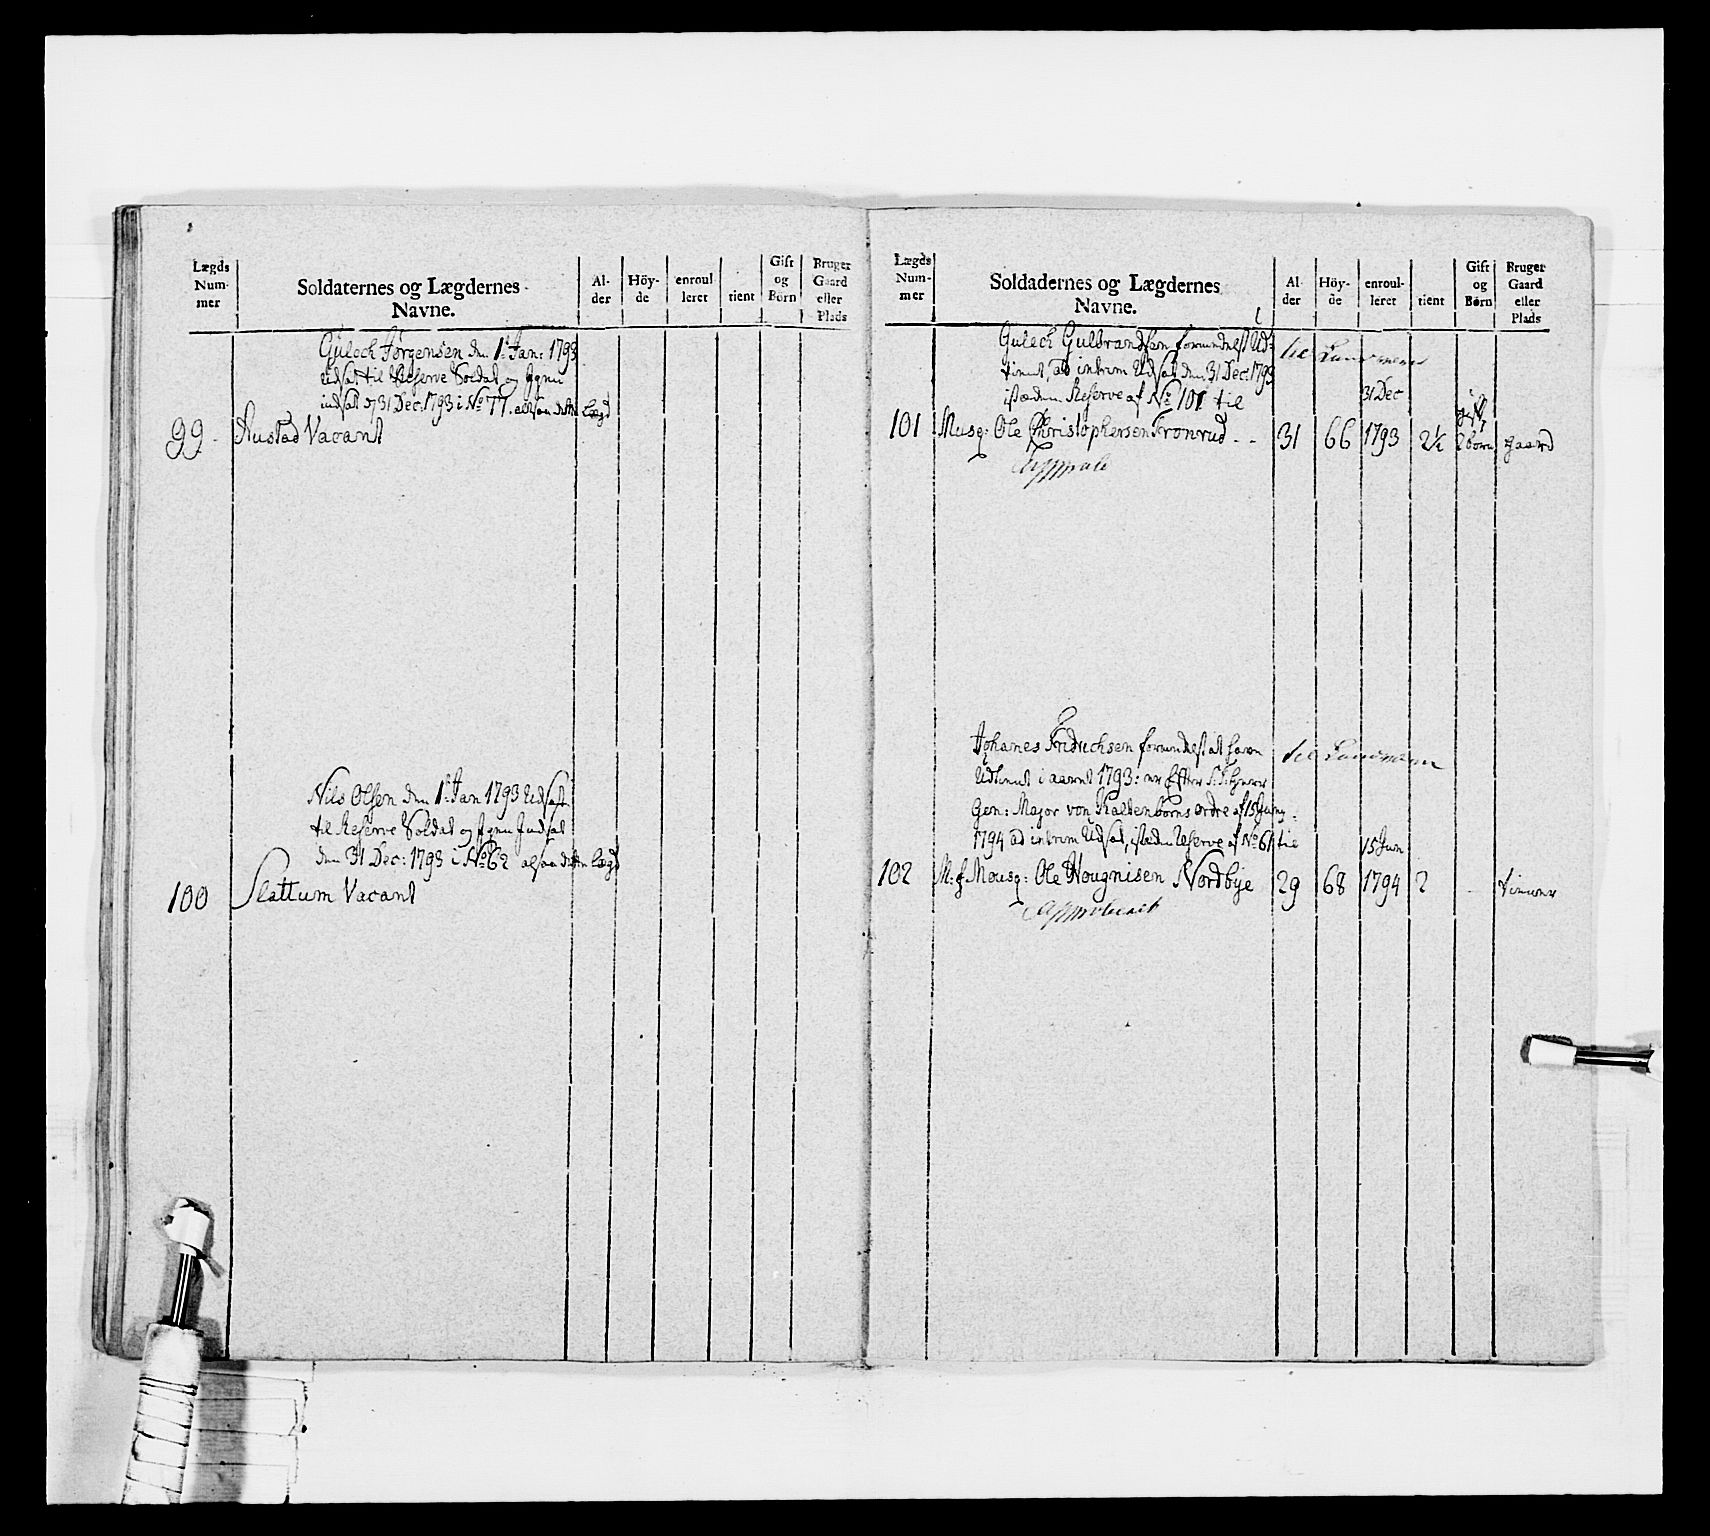 Lægds Num- mer
Soldaternes og Lægdernes Navne.
Al- der
Höy- de
enroul- leret
tient
Gift og Børn
Bruger Gaard eller Plads
Gulech Jørgensen den 1t Jan: 1793
Udsat til Reserve Soldat og Igien
indsat d 31 Dec: 1793 i No 77. altsaa dette Lægd
99. Austad Vacant
Nils Olsen den 1t Jan 1793 Udsat
til Reserve Soldat og Igien Indsat
den 31 Dec: 1793 i No 62 altsaa dette Lægd
100 Slattum Vacant
Lægds Num- mer
Soldadernes og Lægdernes Navne.
Al- der
Höy- de
enroul- leret
tient
Gift og Børn
Bruger Gaard eller Plads
Gulech Gulbrandsen forundest Ud-
tient, ad intrim Udsat den 31 Dec: 1793 til Landværn
isteden Reserve af No 101 til 31 Dec
101 Musq: Ole Christophersen Tronrud - - 31 66 1793 2½ gift 2 børn gaard
Johanes Fridrichsen forundest at have til Landværn
Udtient i aaret 1793: er Efter
Gen: Major von Kaltenborns ordre af 15 Juny
1794 ad intrim Udsat, isteden Reserve af No 61 til 15 Jun
102 M: f Mousq: Ole Hougnisen Nordbye 29 68 1794 2 - tiener
Approberet